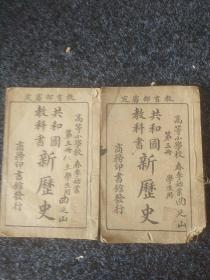 定審部育教
高等小學校 春季始業
學生用
第三冊
共和國
教科書
新歷史
商務印書館發行
定審部育教
高等小學校 春季始業
學生用
第五冊
共和國
教科書
新歷史
商務印書館發行